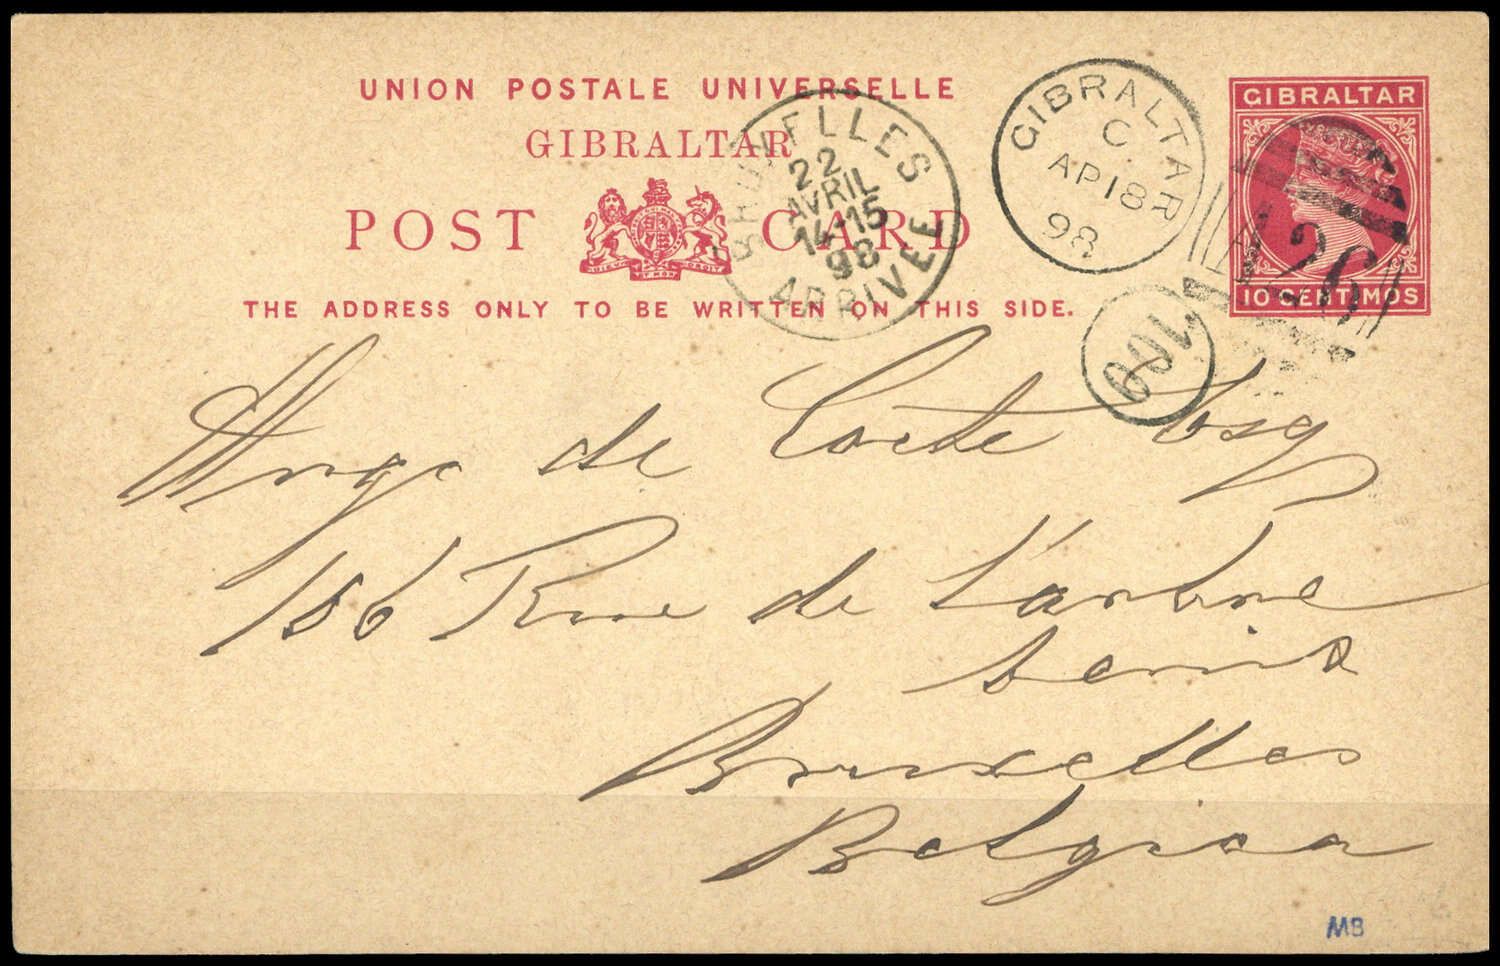 UNION POSTALE UNIVERSELLE
GIBRALTAR
POST CARD
THE ADDRESS ONLY TO BE WRITTEN ON THIS SIDE.
GIBRALTAR
10 CENTIMOS
GIBRALTAR
C
AP 18
98
BRUXELLES
22
AVRIL
14-15
98
ARRIVEE
A26
100
de Corte Esq
166 Rue de L'arbre
benit
Bruxelles
Belgica
MB